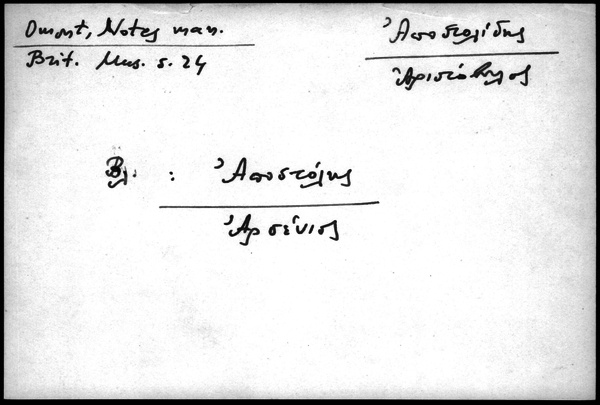 Omont, Notes man.
Brit. Mus. s. 24
Ἀποστολίδης
Ἀριστόβουλος
Βλ. : Ἀποστόλης
Ἀρσένιος